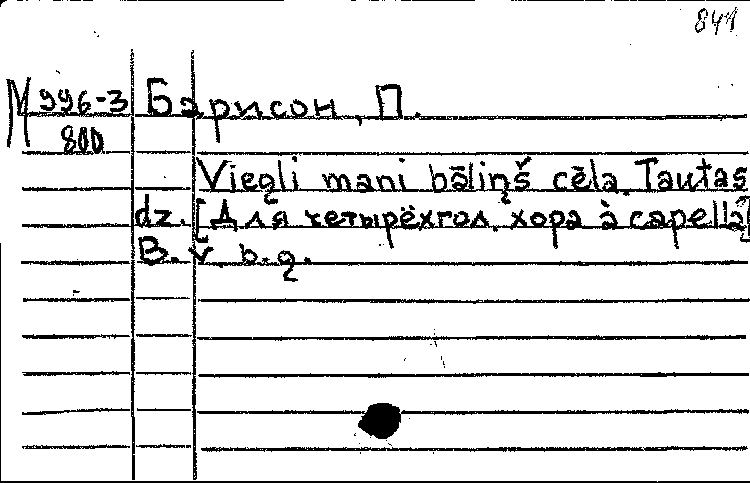 841
М 996-3 Барисон, П.
800
Viegli mani bāliņš cēla. Tautas
dz. [Для четырёхгол. хора à capella]
B. v. b. g.